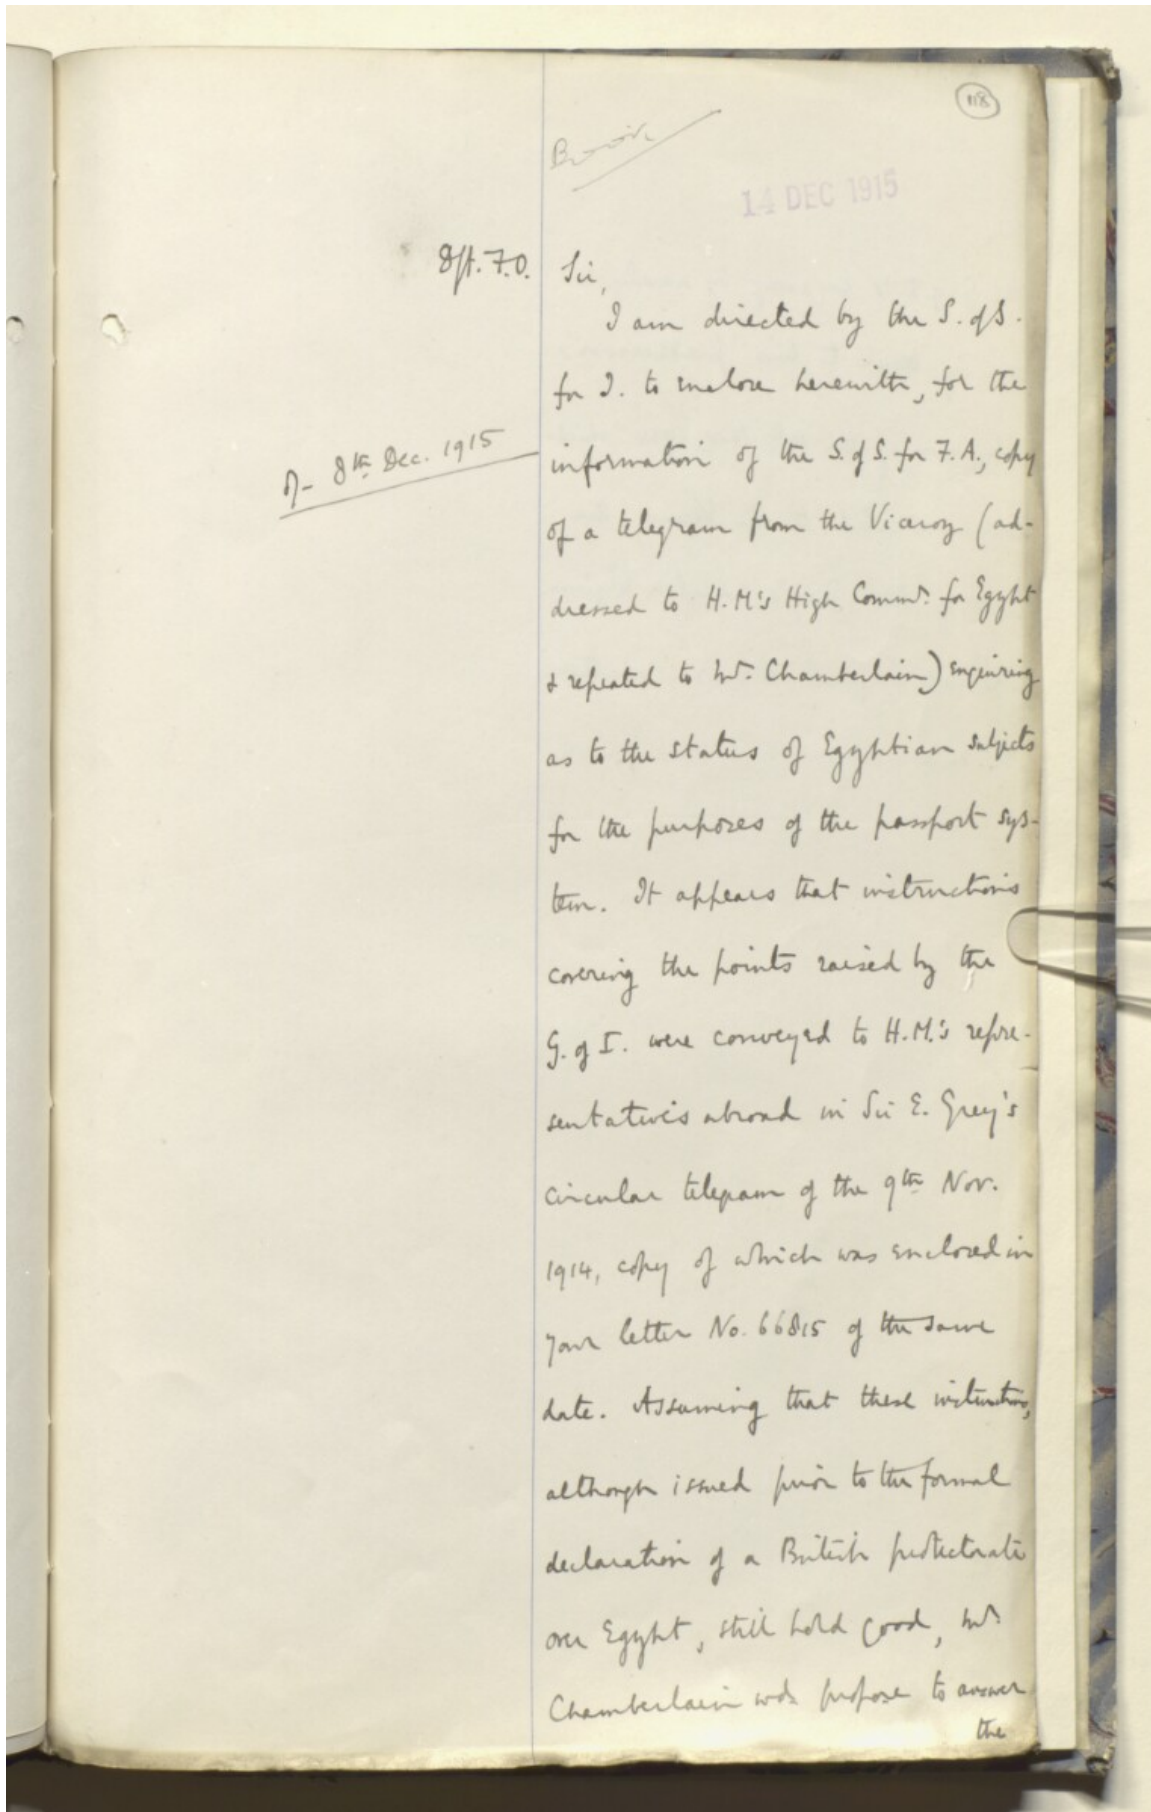 118
14 DEC 1915
Dft. F.O.
Sir,
I am directed by the S. of S.
for I. to enclose herewith, for the
of 8th Dec. 1915
information of the S. of S. for F.A., copy
of a telegram from the Viceroy (ad-
dressed to H.M's High Commr. for Egypt
& repeated to Mr. Chamberlain) enquiring
as to the status of Egyptian subjects
for the purposes of the passport sys-
tem. It appears that instructions
covering the points raised by the
G. of I. were conveyed to H.M.'s repre-
sentatives abroad in Sir E. Grey's
circular telegram of the 9th Nov.
1914, copy of which was enclosed in
your letter No. 66815 of the same
date. Assuming that these instructions,
although issued prior to the formal
declaration of a British protectorate
over Egypt, still hold good, Mr.
Chamberlain wd. propose to answer
the